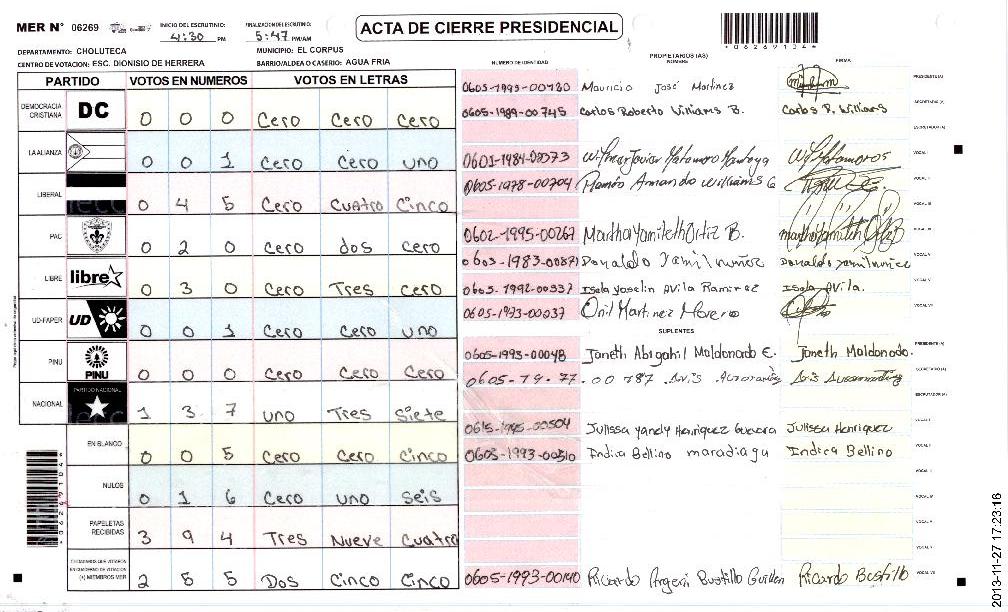 MER N° 06269
INICIO DEL ESCRUTINIO: 4:30 PM
FINALIZACION DEL ESCRUTINIO: 5:47 PM/AM
ACTA DE CIERRE PRESIDENCIAL
DEPARTAMENTO: CHOLUTECA
MUNICIPIO: EL CORPUS
CENTRO DE VOTACION: ESC. DIONISIO DE HERRERA
BARRIO/ALDEA O CASERIO: AGUA FRIA
PARTIDO VOTOS EN NUMEROS VOTOS EN LETRAS
DEMOCRACIA CRISTIANA DC 0 0 0 Cero Cero Cero
LA ALIANZA 0 0 1 Cero Cero uno
LIBERAL 0 4 5 Cero Cuatro Cinco
PAC 0 2 0 Cero dos Cero
LIBRE libre 0 3 0 Cero Tres Cero
UD-FAPER UD 0 0 1 Cero Cero uno
PINU PINU 0 0 0 Cero Cero Cero
NACIONAL PARTIDO NACIONAL 1 3 7 uno Tres Siete
EN BLANCO 0 0 5 Cero Cero Cinco
NULOS 0 1 6 Cero uno Seis
PAPELETAS RECIBIDAS 3 9 4 Tres Nueve Cuatro
CIUDADANOS QUE VOTARON EN CUADERNO DE VOTACION (+) MIEMBROS MER 2 5 5 Dos Cinco Cinco
NUMERO DE IDENTIDAD PROPIETARIOS (AS) NOMBRE FIRMA
Mauricio José Martinez PRESIDENTE(A)
0605-1989-00745 Carlos Roberto Williams B. Carlos R. Williams SECRETARIO (A)
ESCRUTADOR (A)
0601-1984-00073 VOCAL I
0605-1978-00704 Ramón Armando Williams G VOCAL II
VOCAL III
0602-1995-00262 Martha Yamileth Ortiz B. VOCAL IV
0603-1983-00871 Donaldo Yamil nuñez Donaldo Yamil nuñez VOCAL V
0605-1992-00337 Isela Yoselin Avila Ramirez Isela Avila. VOCAL VI
0605-1993-00037 Onil Martinez Moreno VOCAL VII
SUPLENTES
0605-1993-00048 Janeth Abigahil Maldonado E. Janeth Maldonado. PRESIDENTE (A)
0605-19-77-00787 SECRETARIO (A)
ESCRUTADOR (A)
Julissa Yandy Henriquez Guevara Julissa Henriquez VOCAL I
0605-1993-00510 Indira Bellino maradiaga Indira Bellino VOCAL II
VOCAL III
VOCAL IV
VOCAL V
VOCAL VI
0605-1993-00140 Ricardo Argeri Bustillo Guillen Ricardo Bustillo VOCAL VII
2013-11-27 17:23:16